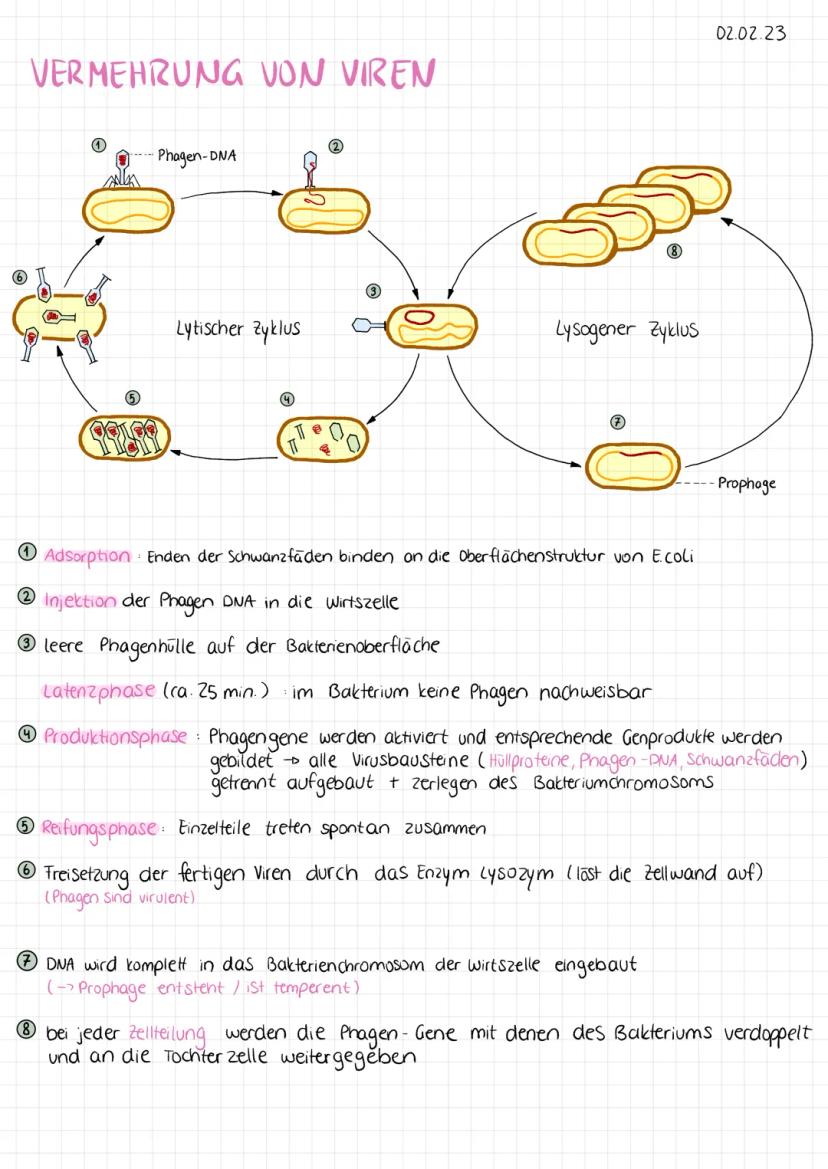 02.02.23
VERMEHRUNG VON VIREN
1
Phagen-DNA
2
3
4
5
6
7
8
Lytischer Zyklus
Lysogener Zyklus
Prophage
1 Adsorption : Enden der Schwanzfäden binden an die Oberflächenstruktur von E.coli
2 Injektion der Phagen DNA in die Wirtszelle
3 leere Phagenhülle auf der Bakterienoberfläche
Latenzphase (ca. 25 min.) : im Bakterium keine Phagen nachweisbar
4 Produktionsphase : Phagengene werden aktiviert und entsprechende Genprodukte werden
gebildet → alle Virusbausteine (Hüllproteine, Phagen-DNA, Schwanzfäden)
getrennt aufgebaut + zerlegen des Bakteriumchromosoms
5 Reifungsphase: Einzelteile treten spontan zusammen
6 Freisetzung der fertigen Viren durch das Enzym Lysozym (löst die Zellwand auf)
(Phagen sind virulent)
7 DNA wird komplett in das Bakterienchromosom der Wirtszelle eingebaut
(→ Prophage entsteht / ist temperent)
8 bei jeder Zellteilung werden die Phagen-Gene mit denen des Bakteriums verdoppelt
und an die Tochterzelle weitergegeben